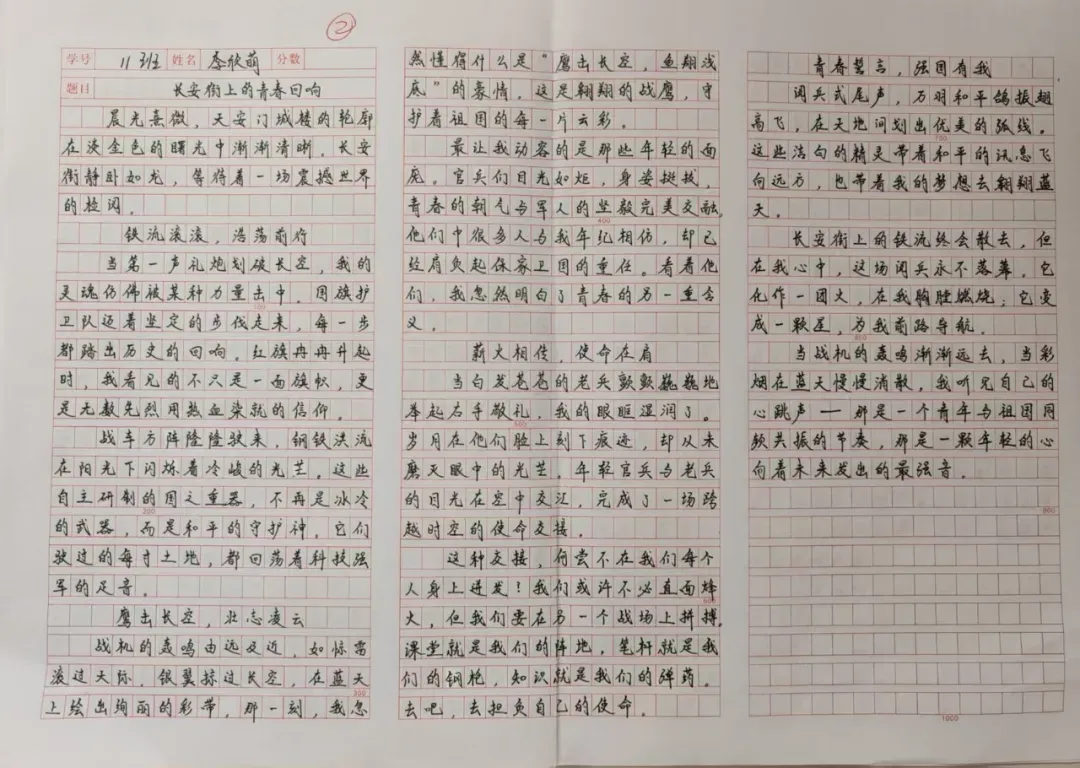 ②
学号 11班 姓名 李欣萌 分数
题目 长安街上的青春回响
晨光熹微，天安门城楼的轮廓
在淡金色的曙光中渐渐清晰。长安
街静卧如龙，等待着一场震撼世界
的检阅。
铁流滚滚，浩荡前行
当第一声礼炮划破长空，我的
灵魂仿佛被某种力量击中。国旗护
100
卫队迈着坚定的步伐走来，每一步
都踏出历史的回响。红旗冉冉升起
时，我看见的不只是一面旗帜，更
是无数先烈用热血染就的信仰。
战车方阵隆隆驶来，钢铁洪流
在阳光下闪烁着冷峻的光芒。这些
自主研制的国之重器，不再是冰冷
200
的武器，而是和平的守护神，它们
驶过的每寸土地，都回荡着科技强
军的足音。
鹰击长空，壮志凌云
战机的轰鸣由远及近，如惊雷
滚过天际。银翼掠过长空，在蓝天
300
上绘出绚丽的彩带。那一刻，我忽
然懂得什么是“鹰击长空，鱼翔浅
底”的豪情。这是翱翔的战鹰，守
护着祖国的每一片云彩。
最让我动容的是那些年轻的面
庞。官兵们目光如炬，身姿挺拔，
青春的朝气与军人的坚毅完美交融。
400
他们中很多人与我年纪相仿，却已
经肩负起保家卫国的重任。看着他
们，我忽然明白了青春的另一重含
义。
薪火相传，使命在肩
当白发苍苍的老兵颤颤巍巍地
举起右手敬礼，我的眼眶湿润了。
500
岁月在他们脸上刻下痕迹，却从未
磨灭眼中的光芒。年轻官兵与老兵
的目光在空中交汇，完成了一场跨
越时空的使命交接。
这种交接，何尝不在我们每个
人身上迸发？我们或许不必直面烽
600
火，但我们要在另一个战场上拼搏。
课堂就是我们的阵地，笔杆就是我
们的钢枪，知识就是我们的弹药。
去吧，去担负自己的使命。
青春誓言，强国有我
阅兵式尾声，万羽和平鸽振翅
高飞，在天地间划出优美的弧线。
这些洁白的精灵带着和平的讯息飞
向远方，也带着我的梦想去翱翔蓝
天。
长安街上的铁流终会散去，但
在我心中，这场阅兵永不落幕。它
化作一团火，在我胸膛燃烧；它变
成一颗星，为我前路导航。
800
当战机的轰鸣渐渐远去，当彩
烟在蓝天慢慢消散，我听见自己的
心跳声——那是一个青年与祖国同
频共振的节奏，那是一颗年轻的心
向着未来发出的最强音。
900
1000